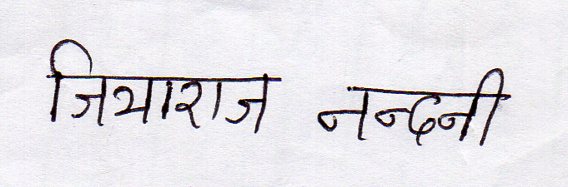 जियाराज नन्दनी